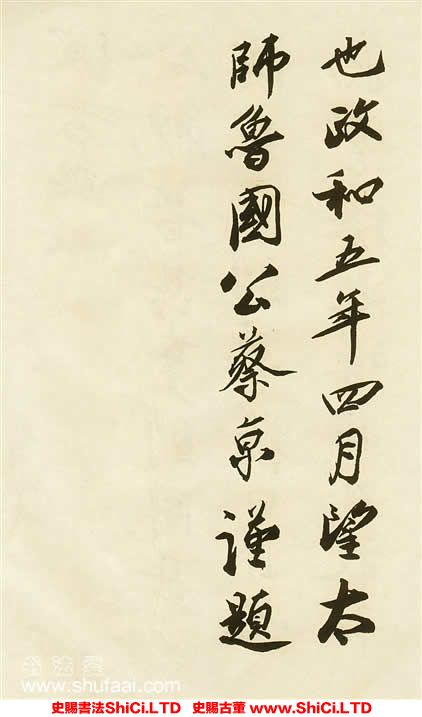 也政和五年四月望太
師魯國公蔡京謹題
书法爱
www.shufaai.com
史賜書法ShiCi.LTD 史賜古董 www.ShiCi.LTD